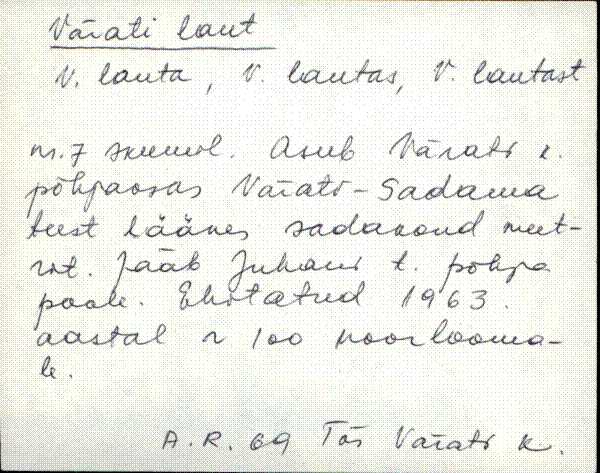 Värati laut
V. lauta, V. lautas, V. lautast
nr. 7 skeemil. Asub Värati k.
põhjaosas Värati-Sadama
teest läänes sadakond meet-
rit. Jääb Juhani t. põhja
poole. Ehitatud 1963.
aastal ~ 100 noorlooma-
le.
A.R. 69 Tõs Värati k.